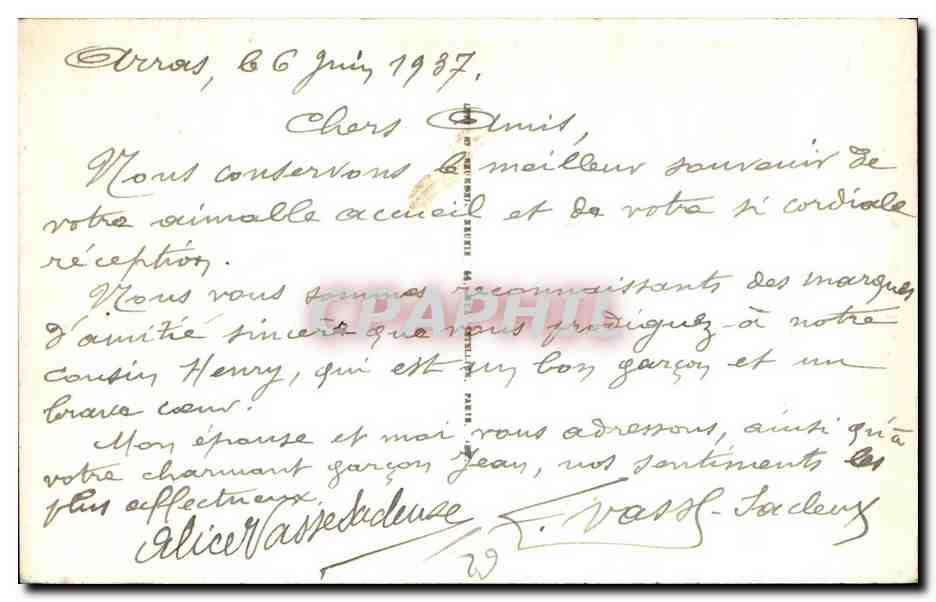 Arras, le 6 Juin 1937.
Chers Amis,
Nous conservons le meilleur souvenir de
votre aimable accueil et de votre si cordiale
réception.
Nous vous sommes reconnaissants des marques
d'amitié sincère que vous prodiguez à notre
cousin Henry, qui est un bon garçon et un
brave cœur.
Mon épouse et moi vous adressons, ainsi qu'à
votre charmant garçon Jean, nos sentiments les
plus affectueux.
Alice
CPAPHIL
PARIS